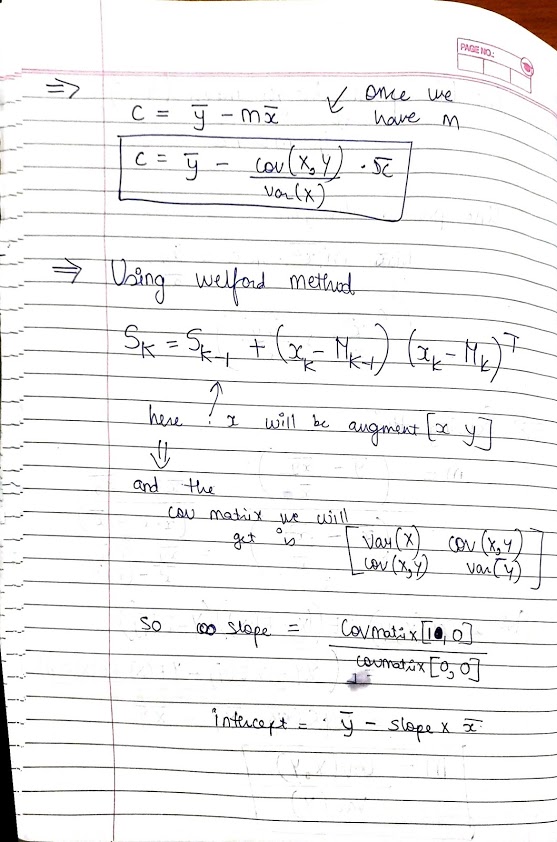 PAGE NO.:
⇒ C = ȳ - mx̄ ↙ Once we have m
C = ȳ - cov(x, y) / var(x) · x̄
⇒ Using welford method
S_K = S_{K-1} + (x_K - M_{K-1}) (x_K - M_K)^T
here : x will be augment [x y]
⇓
and the
cov matrix we will
get is [var(x) cov(x,y)
cov(x,y) var(y)]
so slope = Covmatrix[1, 0]
covmatrix[0, 0]
intercept = ȳ - slope x x̄